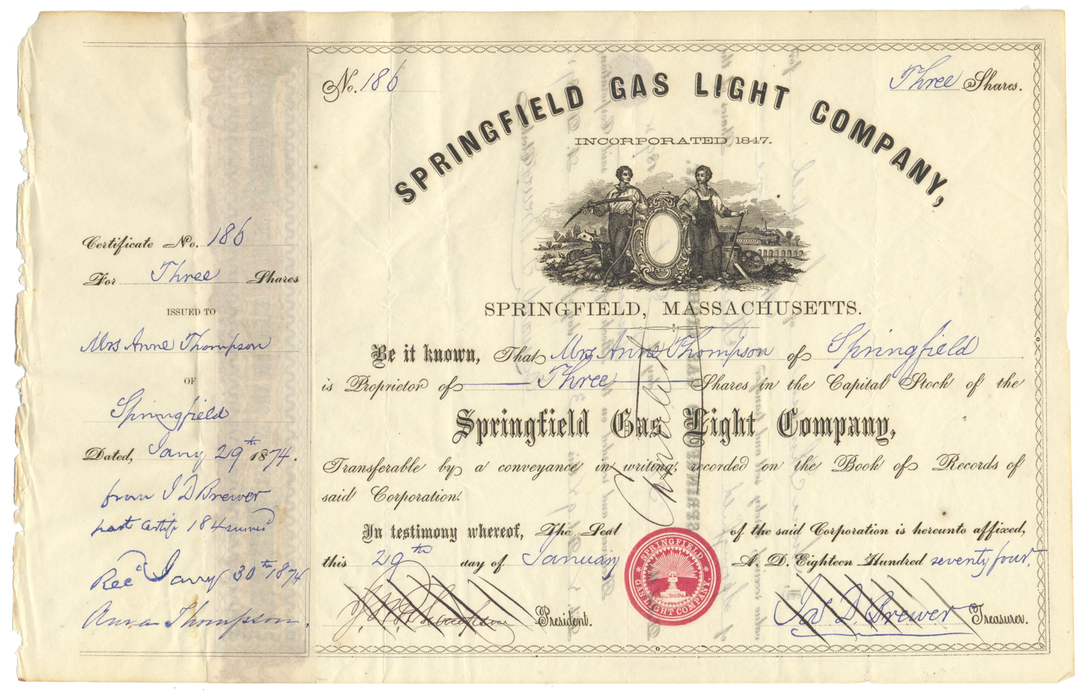 Certificate No. 186
For Three Shares
ISSUED TO
Mrs Anne Thompson
OF
Springfield
Dated, Jany 29th 1874.
from J D Brewer
part certif 184
Rec'd Jany 30th 1874
Anna Thompson.
No. 186
Three Shares.
SPRINGFIELD GAS LIGHT COMPANY,
INCORPORATED 1847.
SPRINGFIELD, MASSACHUSETTS.
Be it known, That Mrs Anne Thompson of Springfield
is Proprietor of Three Shares in the Capital Stock of the
Springfield Gas Light Company,
Transferable by a conveyance in writing, recorded on the Book of Records of
said Corporation.
Cancelled
In testimony whereof, The Seal of the said Corporation is hereunto affixed,
this 29th day of January A. D. Eighteen Hundred seventy four.
SPRINGFIELD
GAS LIGHT COMPANY
President.
Jas D. Brewer Treasurer.